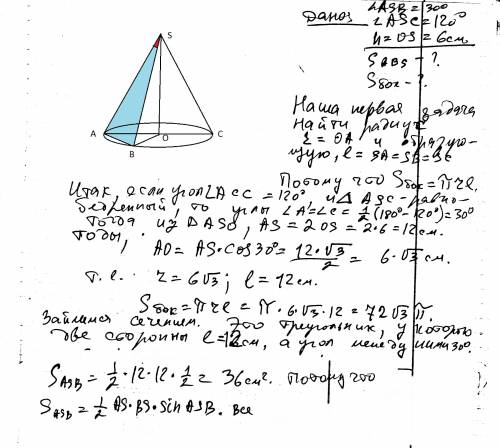 ∠ASB = 30°
Дано: ∠ASC = 120°
H = OS = 6см
S_ABS - ?
Sбок - ?
S
A
B
O
C
Наша первая задача
найти радиус
r = OA и образую-
щую, l = SA = SB = SC
Потому что Sбок = πrl.
Итак если угол ∠ACC = 120° и △ASC - равно-
бедренный, то углы ∠A = ∠C = 1/2 (180° - 120°) = 30°
тогда из △ASO, AS = 2OS = 2·6 = 12см.
тогда,
AO = AS·cos30° = 12·√3/2 = 6√3 см.
т.е. r = 6√3; l = 12см.
Sбок = πrl = π·6√3·12 = 72√3 π.
Займемся сечением. Это треугольник, у которого
две стороны l = 12см, а угол между ними 30°.
S_ASB = 1/2·12·12·1/2 = 36см². Потому что
S_ASB = 1/2 AS·BS·sin ASB. Все